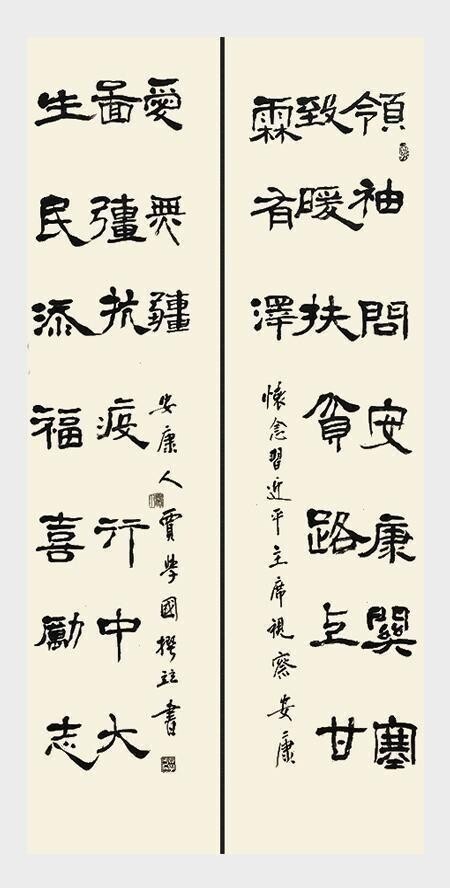 領袖問安康塞
致暖扶貧路上甘
霖有澤
懷念習近平主席視察安康
生民添福喜勵志
圖彊抗疫行中大
愛無疆
安康人賈學國撰並書